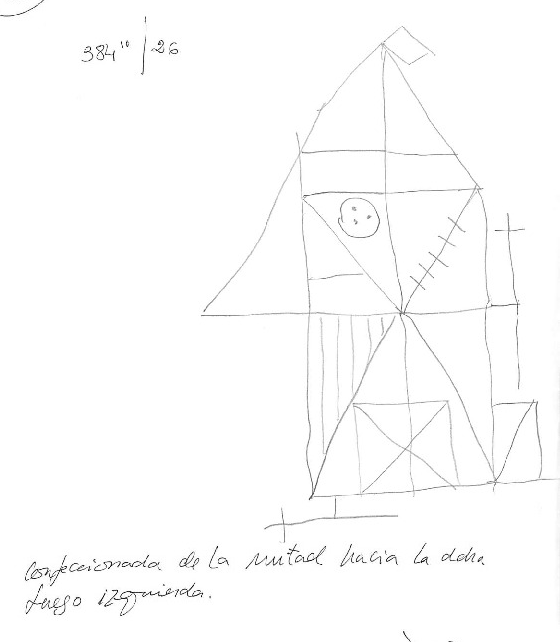 384" / 26
confeccionada de la mitad hacia la dcha
luego izquierda.